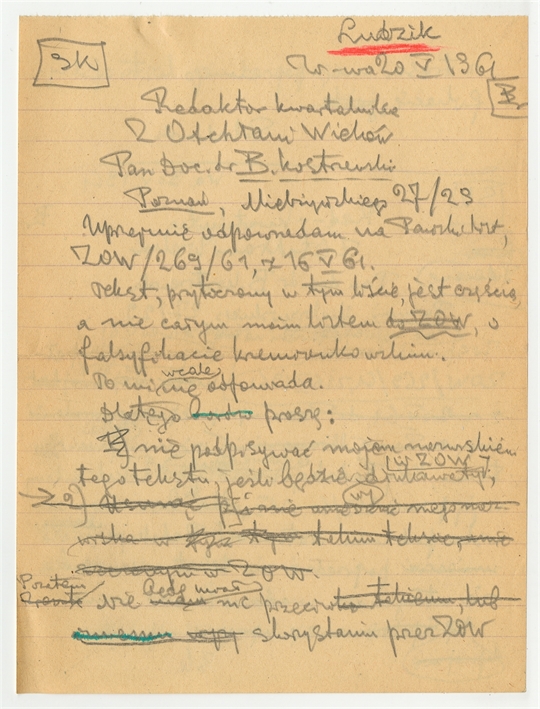 Ludzik
SK
W-wa 20 V 1961
B
Redaktor kwartalnika
Z Otchłani Wieków
Pan Doc. dr B. Kostrzewski
Poznań, Mielżyńskiego 27/29
Uprzejmie odpowiedam na Pański list,
ZOW/269/61, z 16 V 61.
Tekst, przytoczony w tym liście, jest częścią,
a nie całym moim listem do ZOW, o
falsyfikacie kremionkowskim.
To mi wcale nie odpowiada.
Dlatego proszę:
nie podpisywać mojem nazwiskiem
tego tekstu, jeśli będzie drukowany w ZOW,
2) Usunąć
wiska w takim tekście,
w ZOW.
Pozatem
nie będę miał nic przeciwko takiemu, lub
skorystaniu przez ZOW